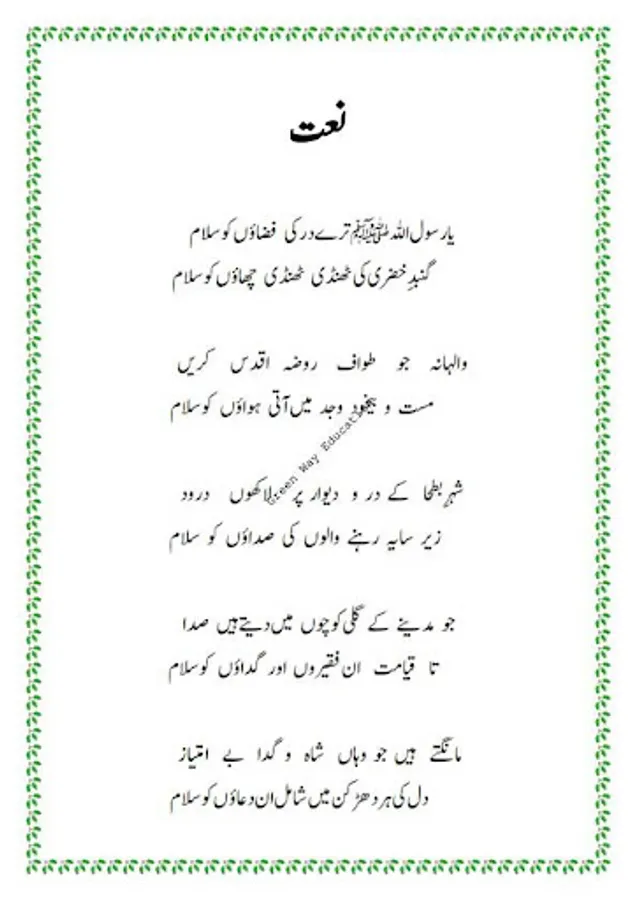 نعت
یا رسول اللہ ﷺ ترے در کی فضاؤں کو سلام
گنبدِ خضری کی ٹھنڈی ٹھنڈی چھاؤں کو سلام
والہانہ جو طواف روضہ اقدس کریں
مست و بیخود وجد میں آتی ہواؤں کو سلام
شہرِ بطحا کے در و دیوار پر لاکھوں درود
زیر سایہ رہنے والوں کی صداؤں کو سلام
جو مدینے کے گلی کوچوں میں دیتے ہیں صدا
تا قیامت ان فقیروں اور گداؤں کو سلام
مانگتے ہیں جو وہاں شاہ و گدا بے امتیاز
دل کی ہر دھڑکن میں شامل ان دعاؤں کو سلام
Green Way Educati